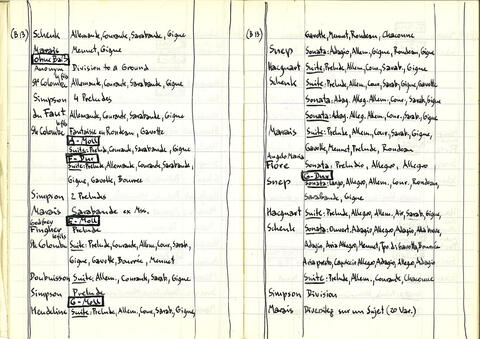 (B 13) Schenk Allemande, Courande, Sarabande, Gigue
Marais Menuet, Gigue
ohne Baß
Anonym Division to a Ground
le fils
Ste Colombe Allemande, Courande, Sarabande, Gigue
Simpson 4 Preludes
du Faut Allemande, Courande, Sarabande, Gigue
le fils
Ste Colombe Fantaisie en Rondeau, Gavotte
A-Moll
Suite: Prelude, Courande, Sarabande, Gigue
F-Dur
Suite: Prelude, Allemande, Courande, Sarabande,
Gigue, Gavotte, Bourree
Simpson 2 Preludes
Marais Sarabande ex Mss.
Godfrey E-Moll
Finger Prelude
le fils
Ste Colombe Suite: Prelude, Courande, Allem, Cour, Sarab,
Gigue, Gavotte, Bourrée, Menuet
Doubuisson Suite: Allem, Courande, Sarab, Gigue
Simpson Prelude
G-Moll
Hendeline Suite: Prelude, Allem, Cour, Sarab, Gigue,
(B 13) Gavotte, Menuet, Rondeau, Chaconne
Snep Sonata: Adagio, Allem, Gigue, Rondeau, Gigue
Hacquart Suite: Prelude, Allem, Cour, Sarab, Gigue
Schenk Suite: Prelude, Allem, Cour, Sarab, Gigue, Gavotte
Sonata: Adag. Alleg. Allem, Cour, Sarab, Gigue
Sonata: Adag. Alleg. Allem, Cour, Sarab, Gigue
Marais Suite: Prelude, Allem, Cour, Sarab, Gigue,
Gavotte, Menuet, Prelude, Rondeau
Angelo Maria
Fiore Sonata: Preludio, Allegro, Allegro
G-Dur
Snep Sonata: Largo, Allegro, Allem, Cour, Rondeau,
Sarabande, Gigue
Hacquart Suite: Prelude, Allegro, Allem, Air, Sarab, Gigue,
Schenk Sonata: Ouvert. Adagio, Allegro, Adagio,
Adagio, Aria Allegro, Menuet, Tpo. di Gavotta, Bourrée
Aria presto, Capriccio Allegro, Adagio, Allegro, Adagio
Suite: Prelude, Allem, Courande, Chaconne
Simpson Division
Marais Diveritez sur un Sujet (20 Var.)